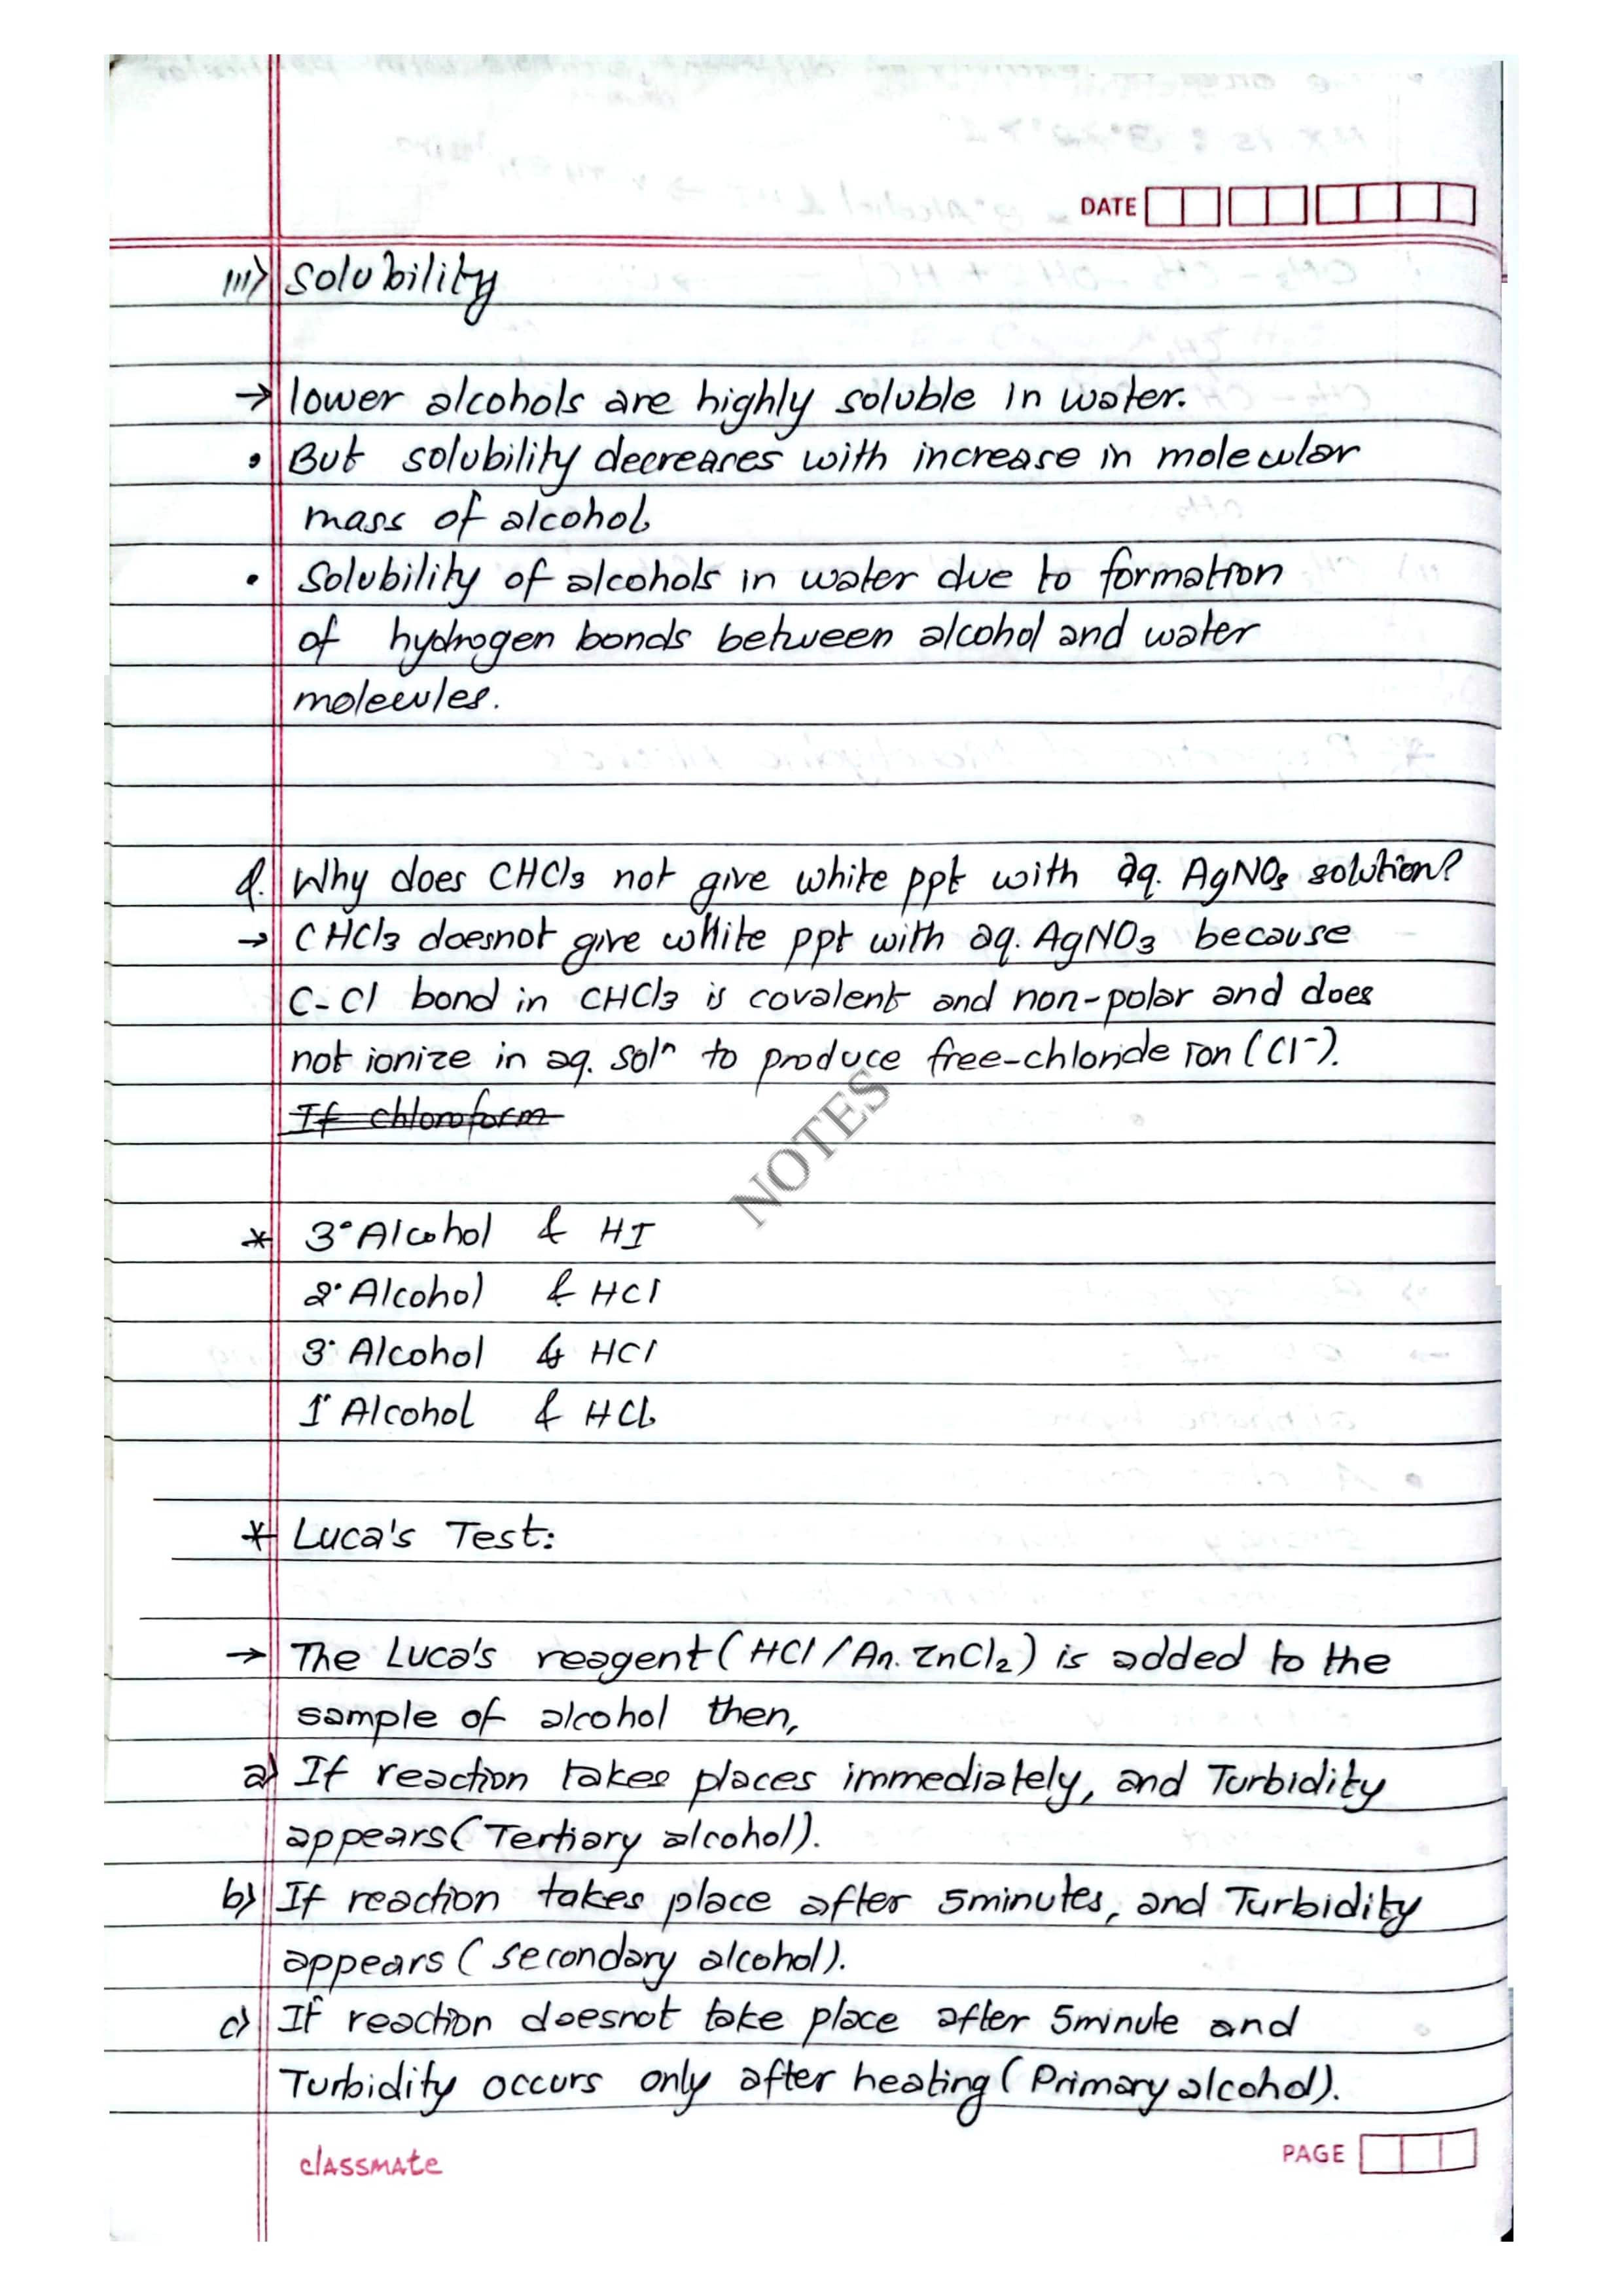 DATE
III) Solubility
→ lower alcohols are highly soluble in water.
• But solubility decreases with increase in molecular
mass of alcohol.
• Solubility of alcohols in water due to formation
of hydrogen bonds between alcohol and water
molecules.
Q. Why does CHCl3 not give white ppt with aq. AgNO3 solution?
→ CHCl3 doesnot give white ppt with aq. AgNO3 because
C-Cl bond in CHCl3 is covalent and non-polar and does
not ionize in aq. solⁿ to produce free-chloride ion (Cl⁻).
If chloroform
NOTES
* 3° Alcohol & HI
2° Alcohol & HCl
3° Alcohol & HCl
1° Alcohol & HCl
* Luca's Test:
→ The Luca's reagent (HCl / An. ZnCl2) is added to the
sample of alcohol then,
a) If reaction takes places immediately, and Turbidity
appears (Tertiary alcohol).
b) If reaction takes place after 5minutes, and Turbidity
appears (secondary alcohol).
c) If reaction doesnot take place after 5minute and
Turbidity occurs only after heating (Primary alcohol).
classmate
PAGE